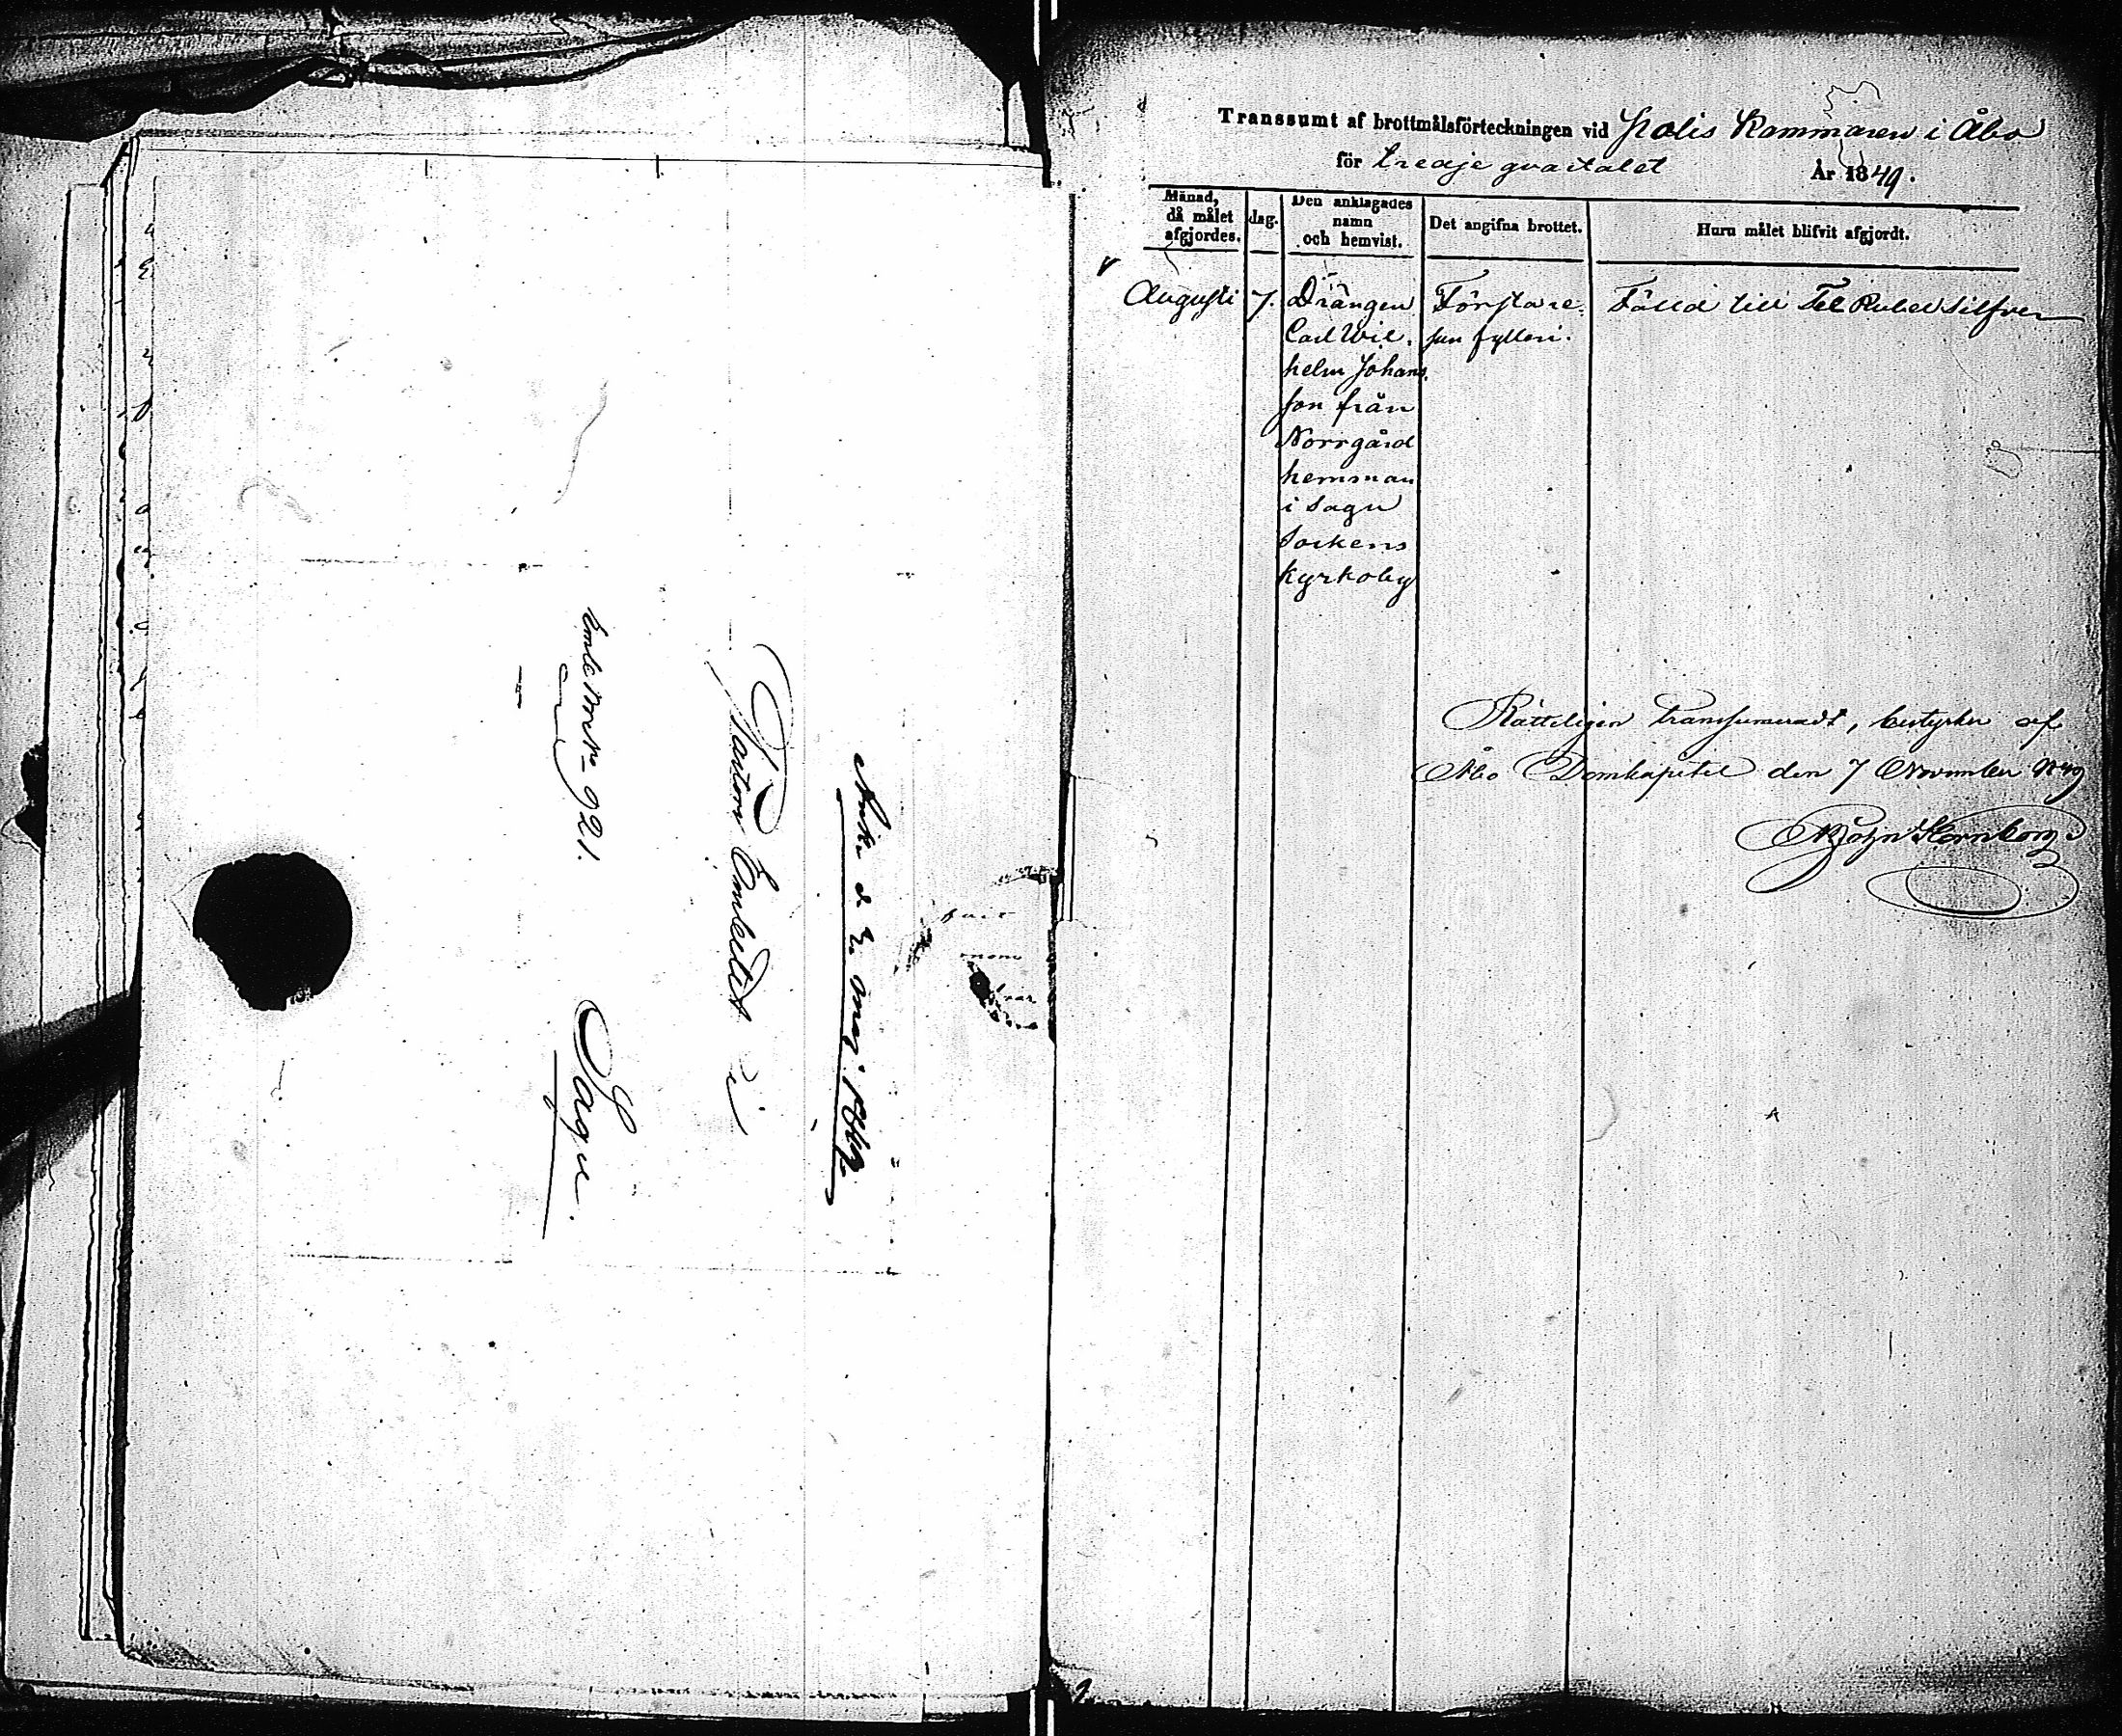 Ank. d 2. maj. 1849.
Pastors Embetet i
Embe mer No 921.
Sagu.
Transsumt af brottmålsförteckningen vid Polis Kammaren i Åbo
för tredje qvartalet År 1849.
Månad, då målet afgjordes.
dag.
Den anklagades namn och hemvist.
Det angifna brottet.
Huru målet blifvit afgjordt.
Augusti 7. Drängen Förstare- Fälld till Rubel Silfver
Carl Wil- sun fylleri.
helm Johans-
son från
Norrgård
hemman
i Sagu
Sockens
Kyrkoby
Rätteligen transsumeradt, bestyrker af
Åbo Domkapitel den 7 November 1849